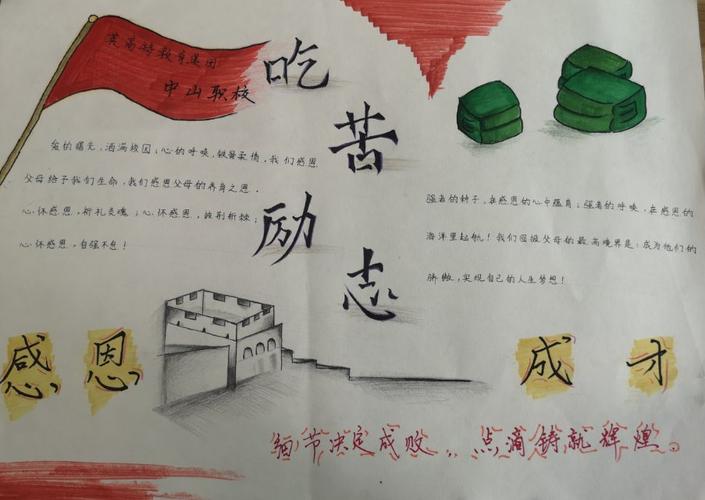 英高特教育集团
中山职校
吃苦励志
爱的曙光，洒满校园；心的呼唤，铁骨柔情，我们感恩
父母给予我们生命，我们感恩父母的养身之恩，
心怀感恩，祈礼灵魂；心怀感恩，披荆斩棘；
心怀感恩，自强不息！
强者的种子，在感恩的心中蕴育；强者的呼唤，在感恩的
海洋里起航！我们回报父母的最高境界是：成为他们的
骄傲，实现自己的人生梦想！
感恩
成才
细节决定成败，点滴铸就辉煌。